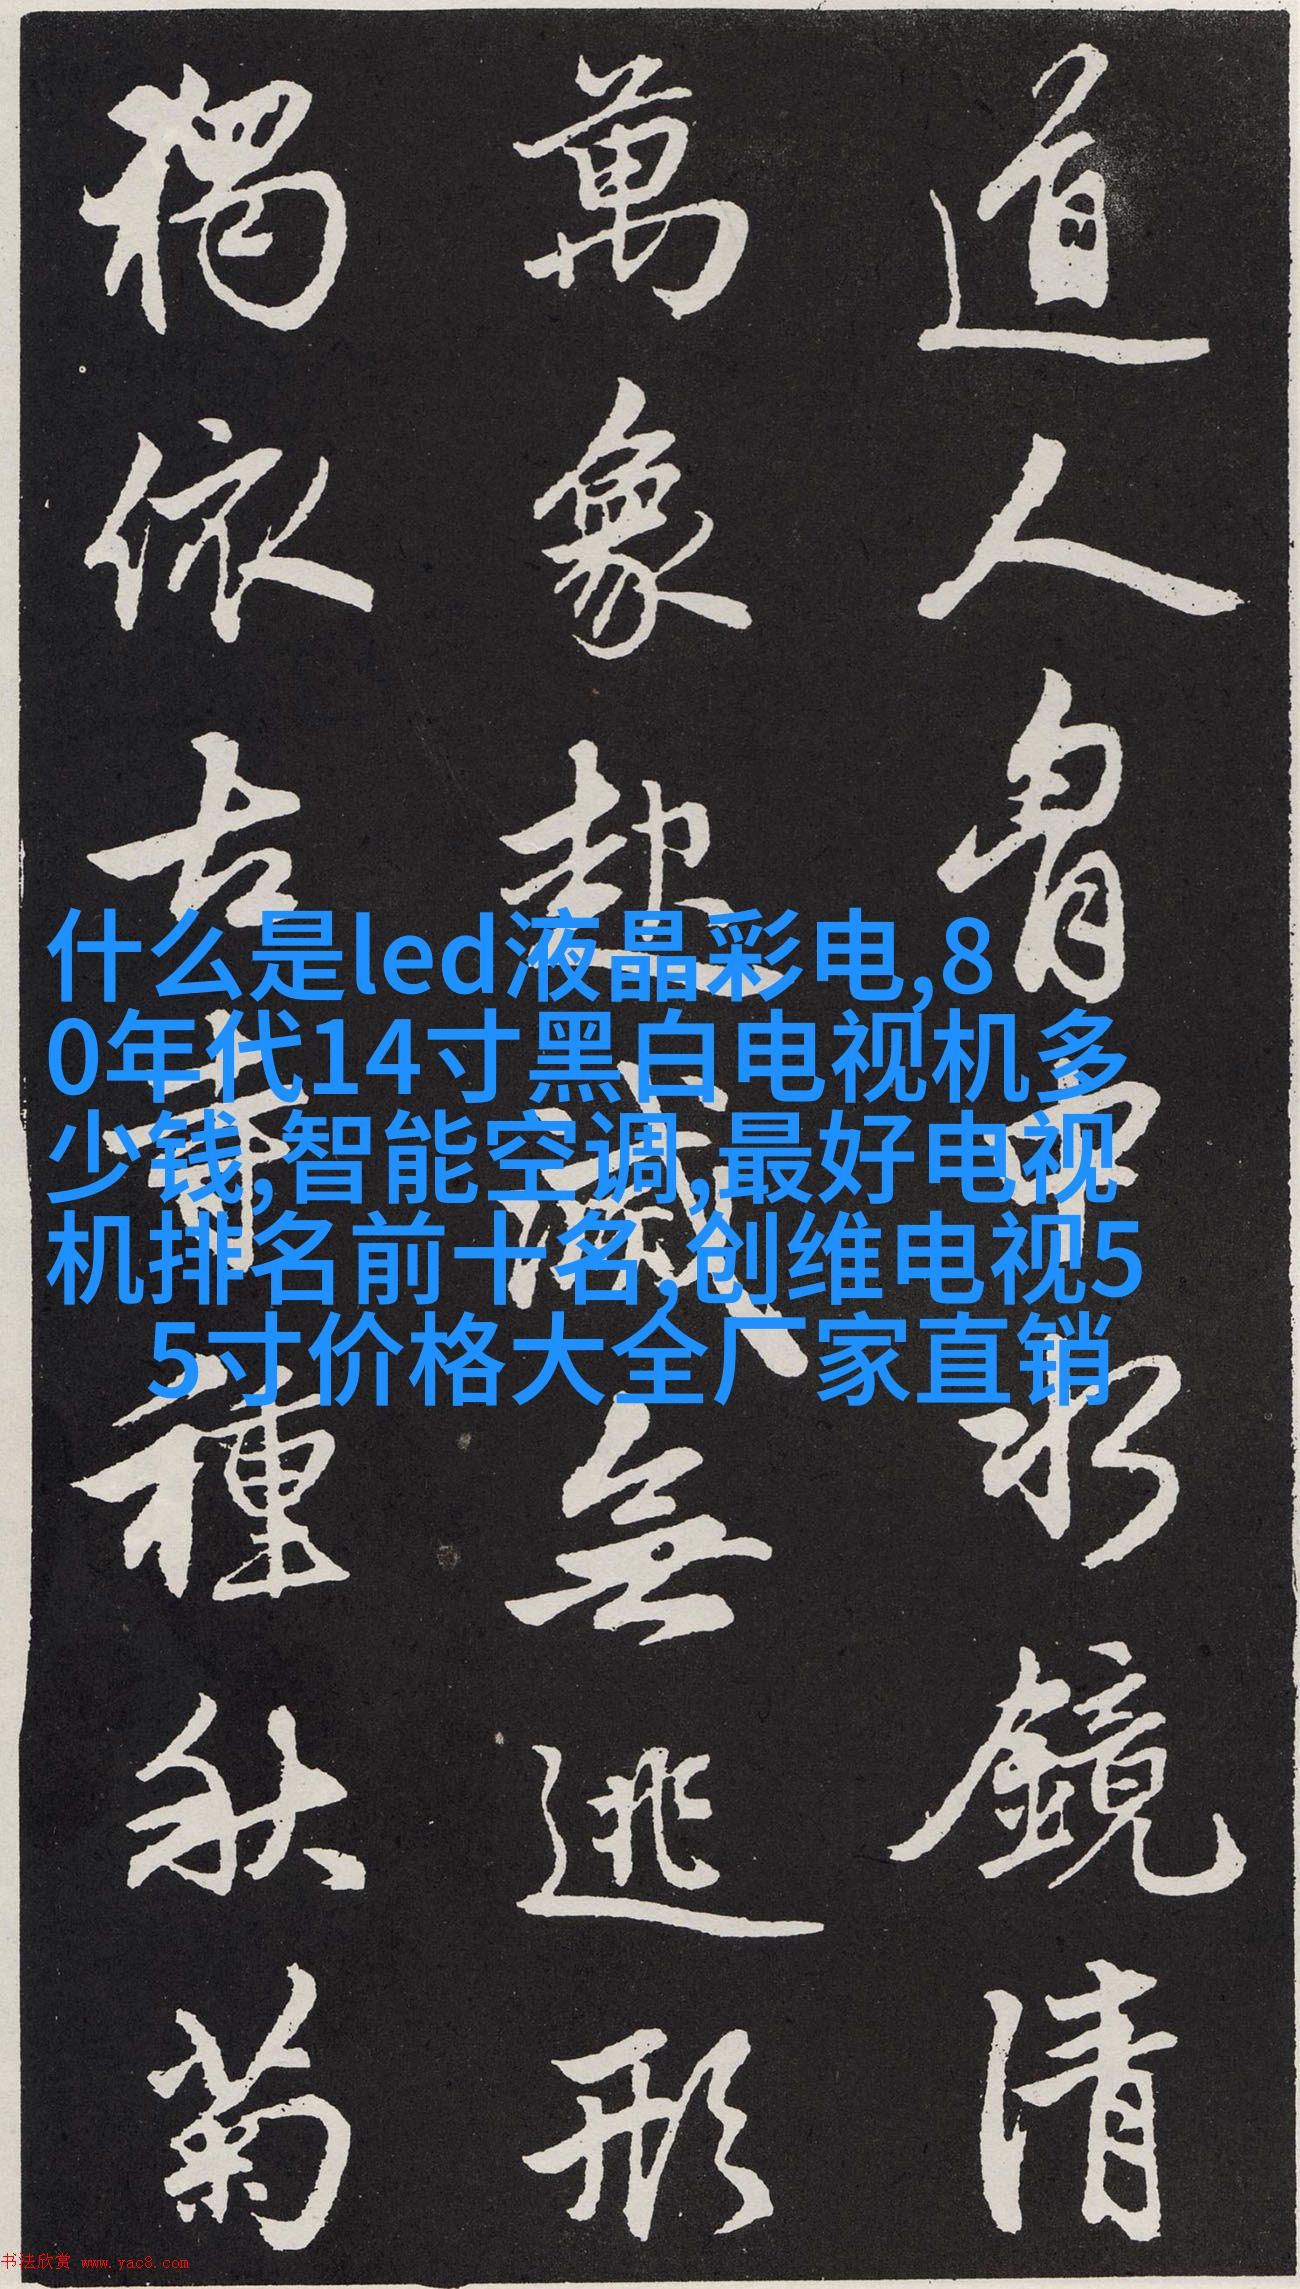 道人胷中水鏡清
萬象起滅無逃形
獨依古寺種秋菊
什么是led液晶彩电,8
0年代14寸黑白电视机多
少钱,智能空调,最好电视
机排名前十名,创维电视5
5寸价格大全厂家直销
书法欣赏 www.yac8.com